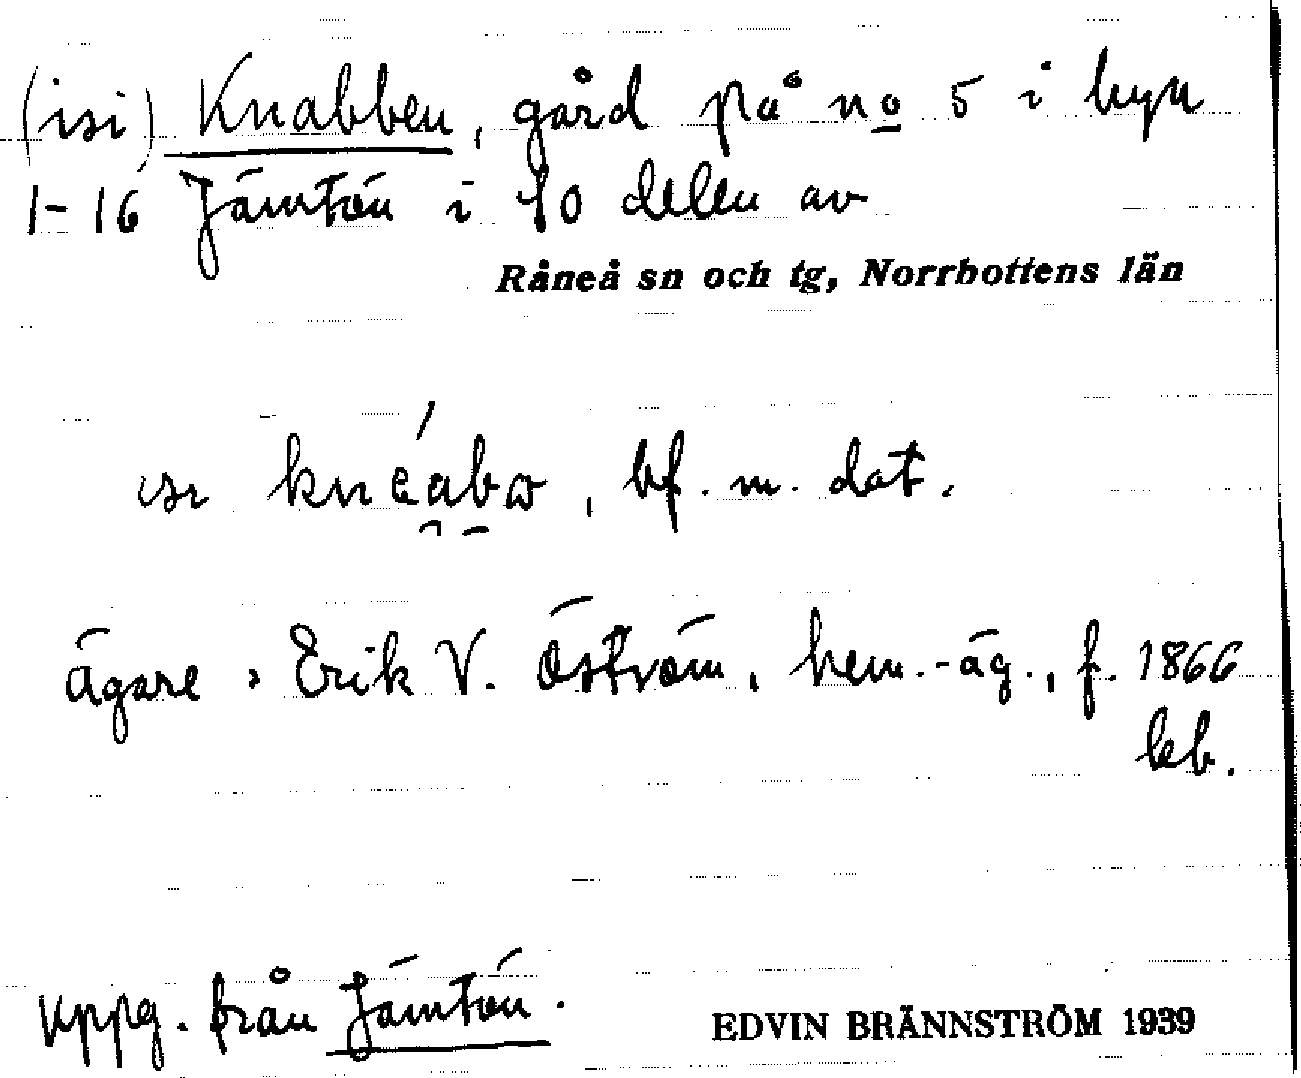 (isi) Knabben, gård på no 5 i byn
1-16 Jämtön i SO delen av
Råneå sn och tg, Norrbottens län
bf. m. dat.
ägare: Erik V. Öström, hem.-äg., f. 1866
leb.
uppg. från Jämtön.
EDVIN BRÄNNSTRÖM 1939